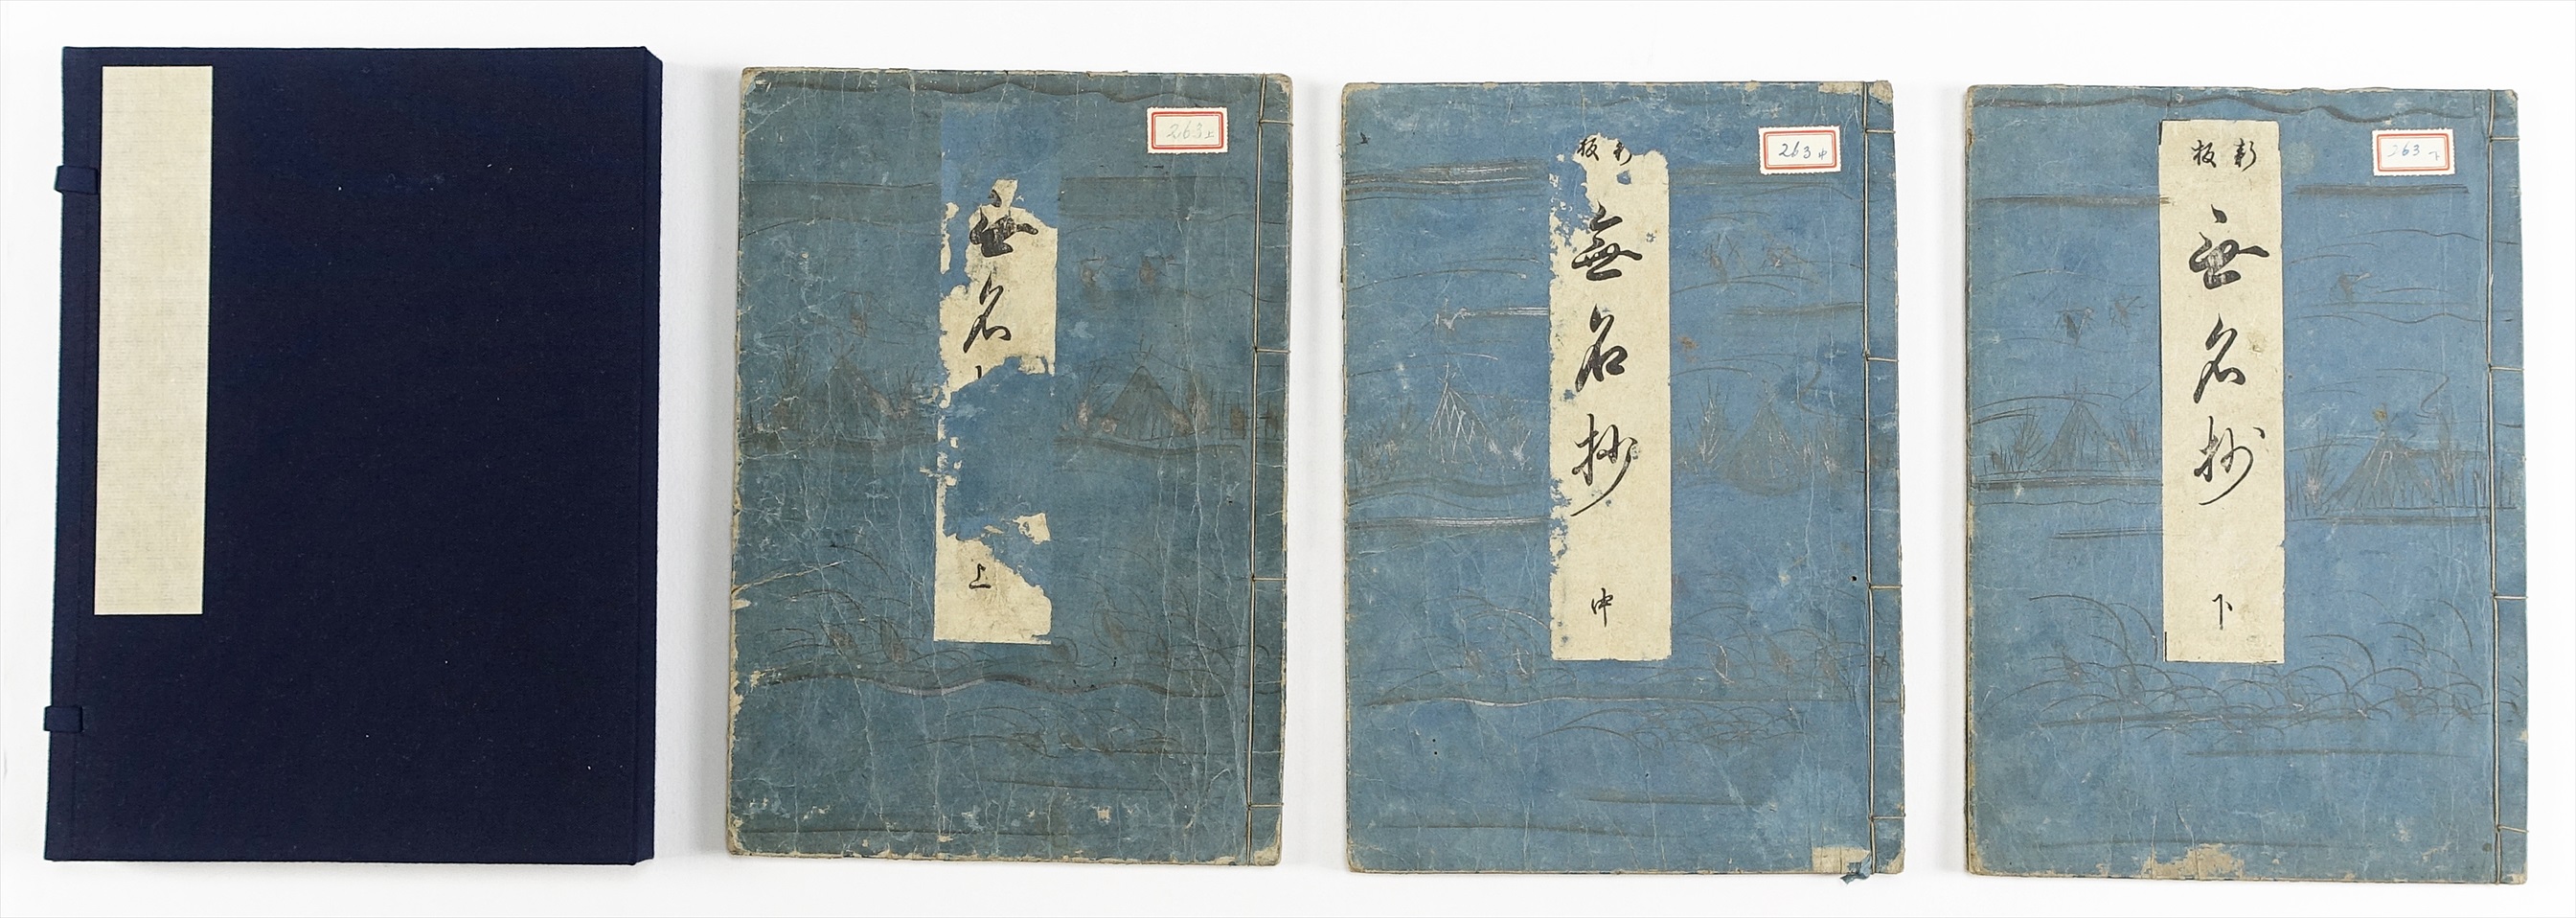 263上
無名
上
263中
新板
無名抄
中
263下
新板
無名抄
下